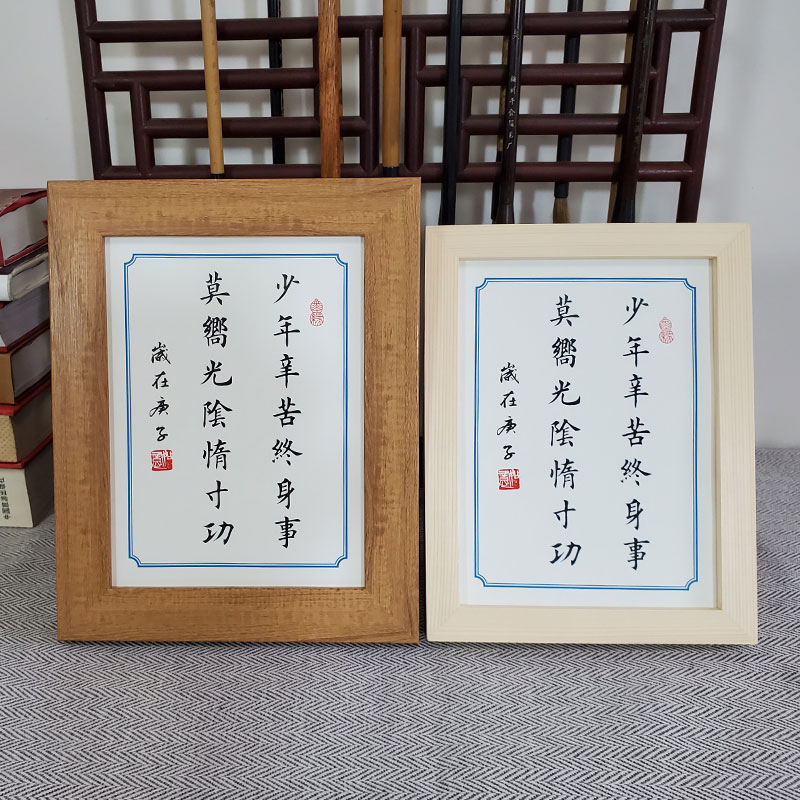 少年辛苦終身事
莫嚮光陰惰寸功
歲在庚子
少年辛苦終身事
莫嚮光陰惰寸功
歲在庚子